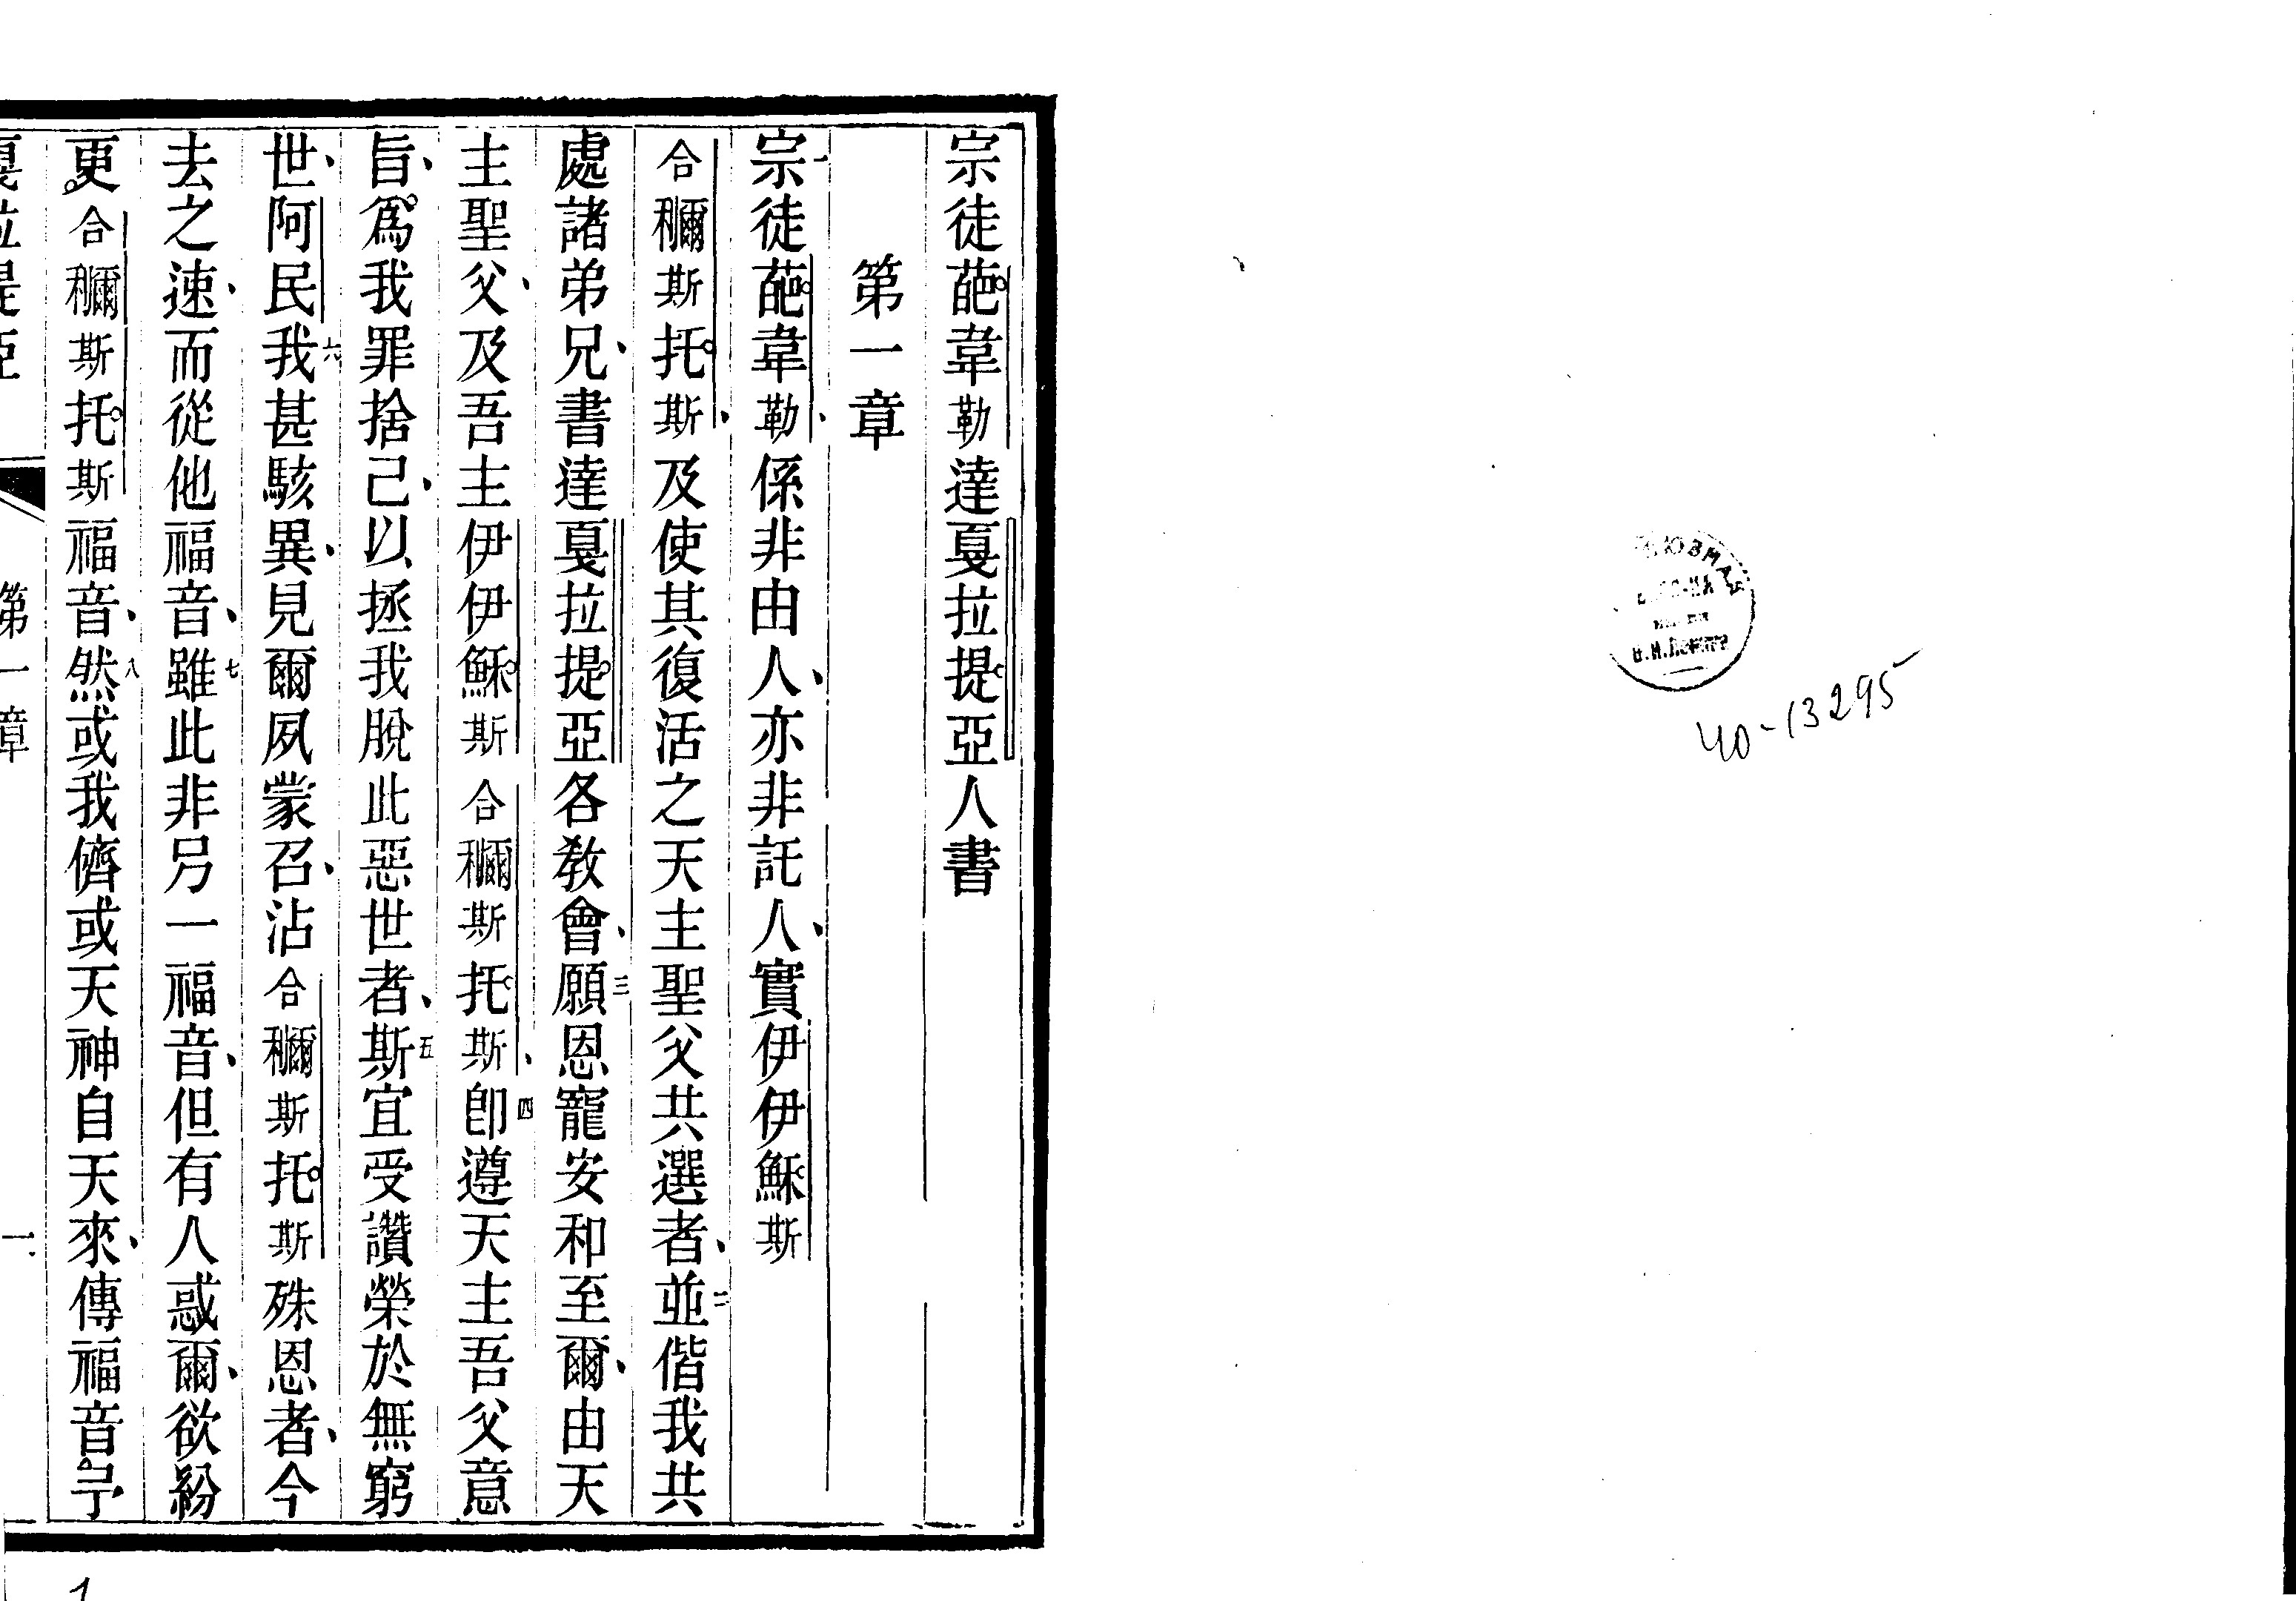 宗徒葩韋勒達戛拉提亞人書
第一章
一宗徒葩韋勒、係非由人、亦非託人、實伊伊穌斯
合穪斯托斯、及使其復活之天主聖父共選者、二並偕我共
處諸弟兄、書達戛拉提亞各教會、三願恩寵安和至爾、由天
主聖父、及吾主伊伊穌斯合穪斯托斯、四卽遵天主吾父意
旨、爲我罪捨己、以拯我脫此惡世者、五斯宜受讚榮於無窮
世、阿民六我甚駭異、見爾夙蒙召、沾合穪斯托斯殊恩者、今
去之速、而從他福音、七雖此非另一福音、但有人惑爾、欲紛
更合穪斯托斯福音、八然或我儕或天神自天來、傳福音
第一章
一
40-13295
1